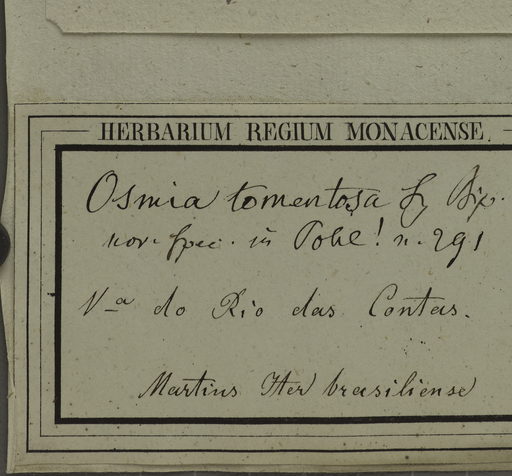 HERBARIUM REGIUM MONACENSE.
Osmia tomentosa Sz Bip.
nov. spec. in Pohl! n. 291
V-a do Rio das Contas.
Martius Iter brasiliense